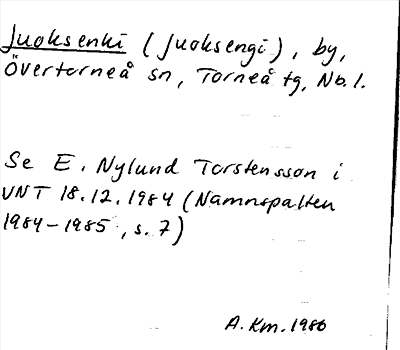 Juoksenki (Juoksengi), by,
Övertorneå sn, Torneå tg, Nb.l.
Se E. Nylund Torstensson i
VNT 18.12.1984 (Namnspalten
1984-1985, s. 7)
A. Km. 1986